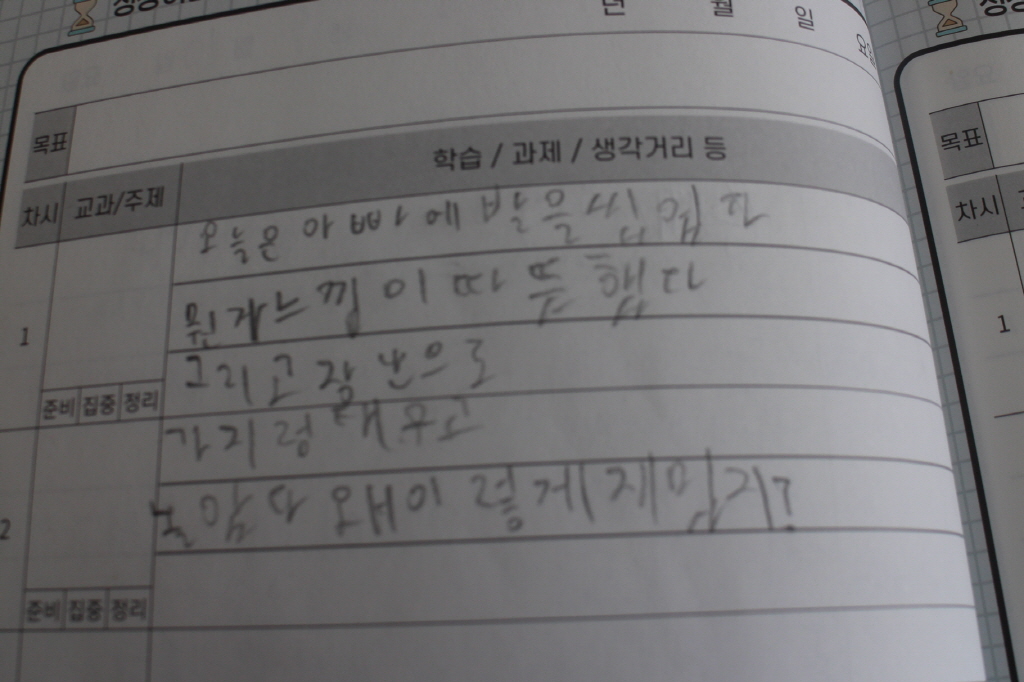 년 월 일
목표
차시 교과/주제 학습 / 과제 / 생각거리 등
오늘은 아빠에 발을 씹업다
뭔가 느낌이 따뜻했다
1
그리고 잘난으로
준비 집중 정리
가지렁 태우고
2
놀았다 왜이렇게 재밉지?
준비 집중 정리
목표
차시
1